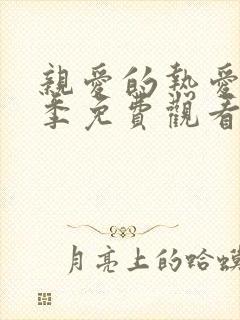 親愛的熱愛
季免費觀看
月亮上的蛤蟆